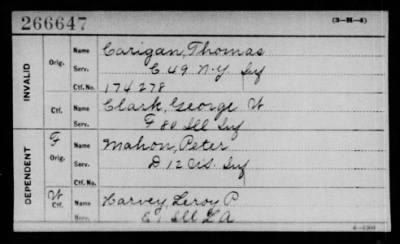 266647
(3-H-4)
INVALID Orig. Name Carigan, Thomas
Serv. C. 49 N.Y. Inf
Ctf. No. 174278
Ctf. Name Clark, George W
F 80 Ill Inf
DEPENDENT F Orig. Name Mahon, Peter
Serv. D 12 Inf
Ctf. No.
W Ctf. Name Harvey, Leroy P
Serv. Ill L A